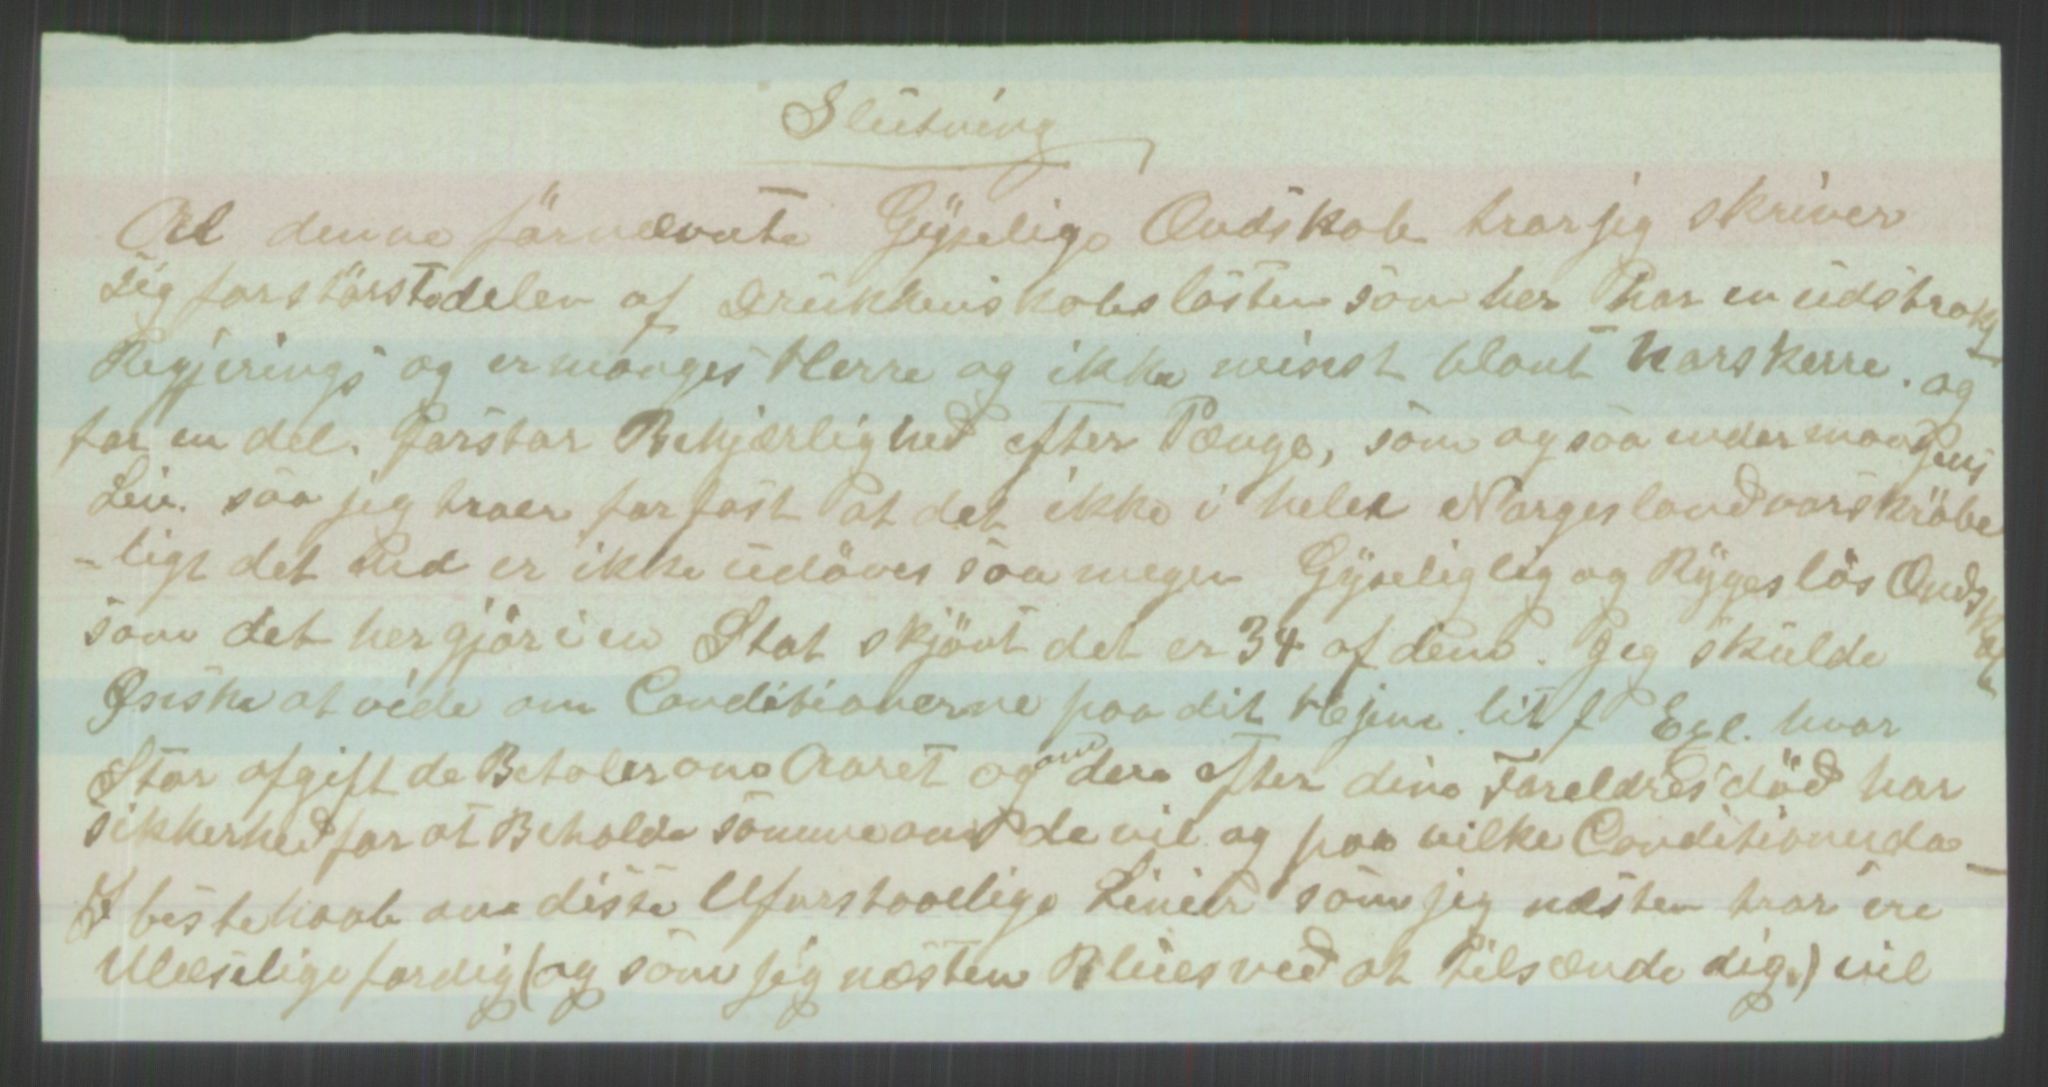 Slutning
Al denne förnævnte Gyselige Ondskab tror jeg skriver
sig for störstedelen af Drukkenskabslasten som her har en udstrakt
Regjerings og er manges Herre og ikke minst blant Norskerne. og
for en del. forstor Behjærlighed efter Penge, som ogsaa ender mangens
Liv. saa jeg troer forfast at det ikke i hele Norges land vorskröbe
-ligt det end er ikke udöves saa megen Gyseliglig og Rygeslös Ondskab
som det her gjör i en Stat skjönt det er 34 af dem. Jeg skulde
Önske at vide om Conditionerne paa dit Hejm. lit f Exl. hvor
Stor afgift de Betaler om Aaret og om dere efter dine Foreldres död har
sikkerhed for at Beholde samme om de vil og paa vilke Conditioner da_
I beste haab om disse Uforstaaelige Linier som jeg næsten tror ere
Ulæselige fordig (og som jeg næsten Blues ved at tilsænde dig.) vil